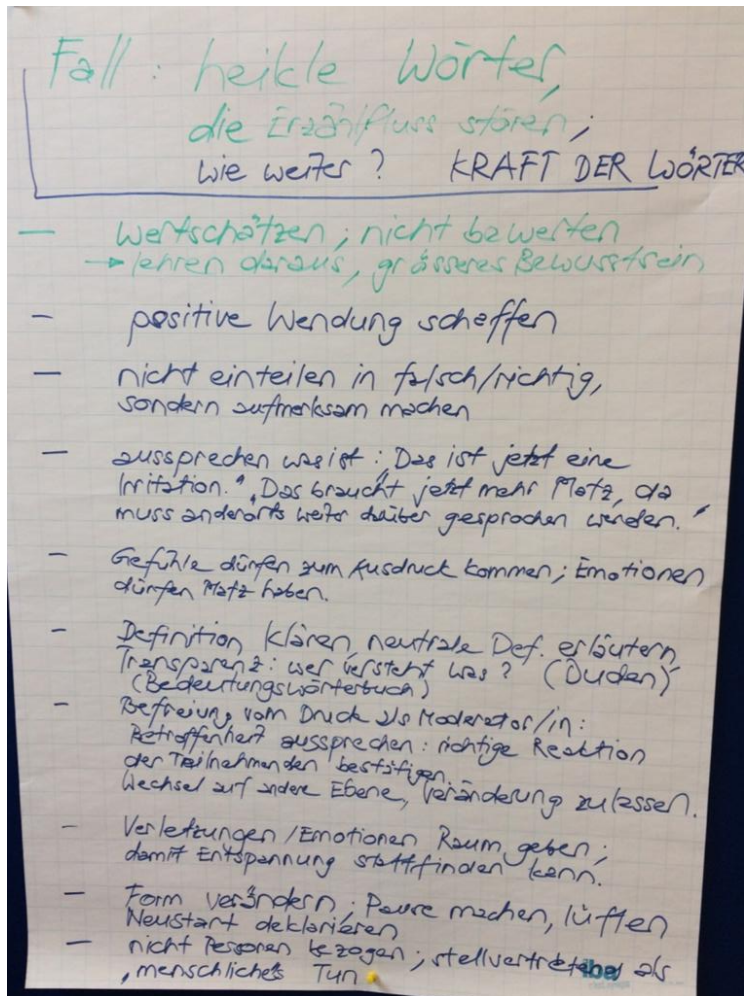 Fall: heikle Wörter,
die Erzählfluss stören;
wie weiter? KRAFT DER WÖRTER
— wertschätzen; nicht bewerten
→ lehren daraus, grösseres Bewusstsein
— positive Wendung schaffen
— nicht einteilen in falsch/richtig,
sondern aufmerksam machen
— aussprechen was ist: „Das ist jetzt eine
Irritation." „Das braucht jetzt mehr Platz, da
muss anderorts weiter darüber gesprochen werden."
— Gefühle dürfen zum Ausdruck kommen; Emotionen
dürfen Platz haben.
— Definition klären, neutrale Def. erläutern,
Transparenz: wer versteht was? (Duden)
(Bedeutungswörterbuch)
— Befreiung vom Druck als Moderator/in:
Betroffenheit aussprechen: richtige Reaktion
der Teilnehmenden bestätigen.
Wechsel auf andere Ebene, Veränderung zulassen.
— Verletzungen/Emotionen Raum geben;
damit Entspannung stattfinden kann.
— Form verändern; Pause machen, lüften
Neustart deklarieren
— nicht Personen bezogen; stellvertretend als
„menschliches Tun